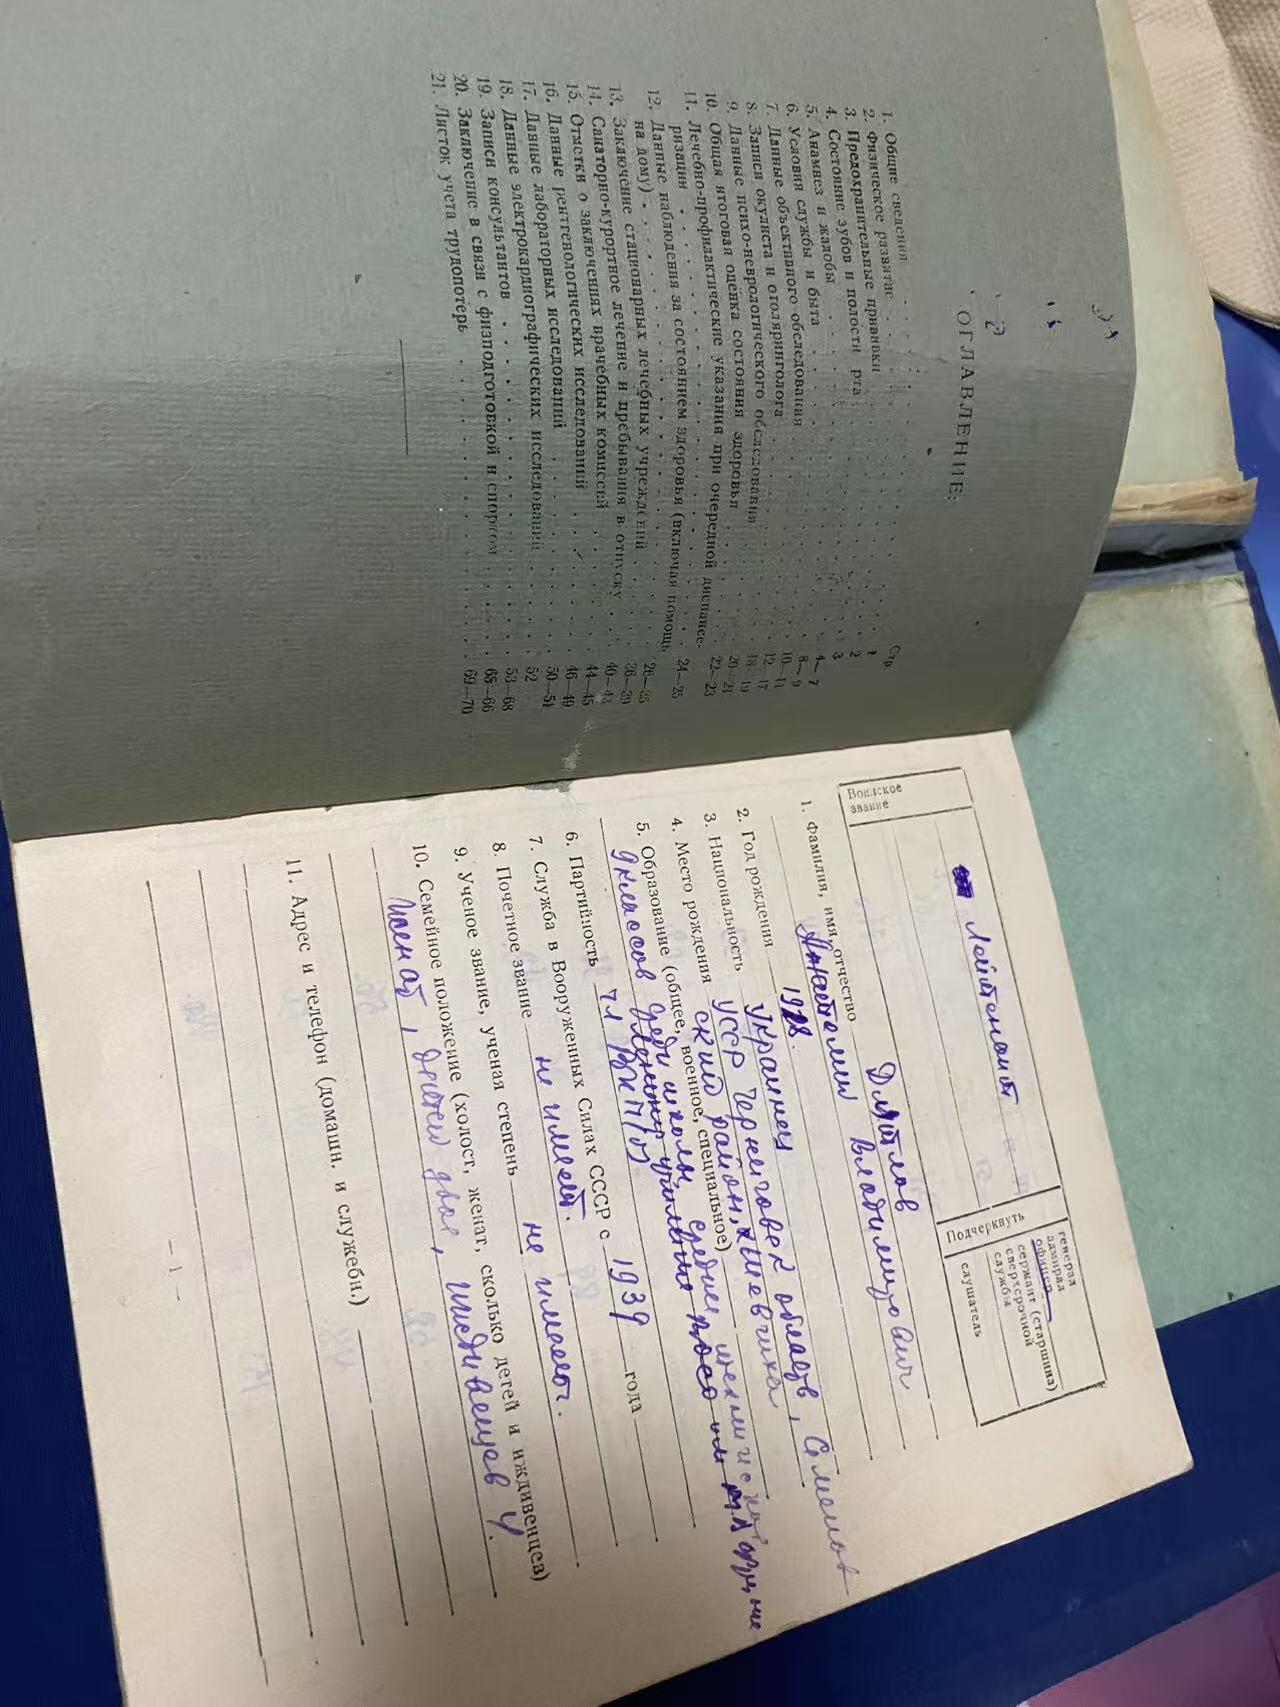 ОГЛАВЛЕНИЕ:
Стр.
1. Общие сведения . . . 1
2. Физическое развитие . . . 2
3. Предохранительные прививки . . . 3
4. Состояние зубов и полости рта . . . 4—7
5. Анамнез и жалобы . . . 8—9
6. Условия службы и быта . . . 10—11
7. Данные объективного обследования . . . 12—17
8. Записи окулиста и отоляринголога . . . 18—19
9. Данные психо-неврологического обследования . . . 20—21
10. Общая итоговая оценка состояния здоровья . . . 22—23
11. Лечебно-профилактические указания при очередной диспансе-
ризации . . . 24—25
12. Данные наблюдения за состоянием здоровья (включая помощь
на дому) . . . 26—35
13. Заключение стационарных лечебных учреждений . . . 36—39
14. Санаторно-курортное лечение и пребывания в отпуску . . . 40—43
15. Отметки о заключениях врачебных комиссий . . . 44—45
16. Данные рентгенологических исследований . . . 46—49
17. Данные лабораторных исследований . . . 50—51
18. Данные электрокардиографических исследований . . . 52
19. Записи консультантов . . . 53—68
20. Заключение в связи с физподготовкой и спортом . . . 65—66
21. Листок учета трудопотерь . . . 69—70
Воинское
звание
Лейтенант
Подчеркнуть
генерал
адмирал
офицер
сержант (старшина)
сверхсрочной
службы
слушатель
1. Фамилия, имя, отчество Дмитлов
Анатолий Владимирович
2. Год рождения 1918.
3. Национальность Украинец
4. Место рождения УССР Черниговск область, Семенов
ский район,
5. Образование (общее, военное, специальное)
9 классов средн школы, средне,
6. Партийность чл ВКП/б/
7. Служба в Вооруженных Силах СССР с 1939 года
8. Почетное звание не имеет.
9. Ученое звание, ученая степень не имеет.
10. Семейное положение (холост, женат, сколько детей и иждивенцев)
Женат, детей двое, иждивенцев 4.
11. Адрес и телефон (домашн. и служебн.)
— 1 —